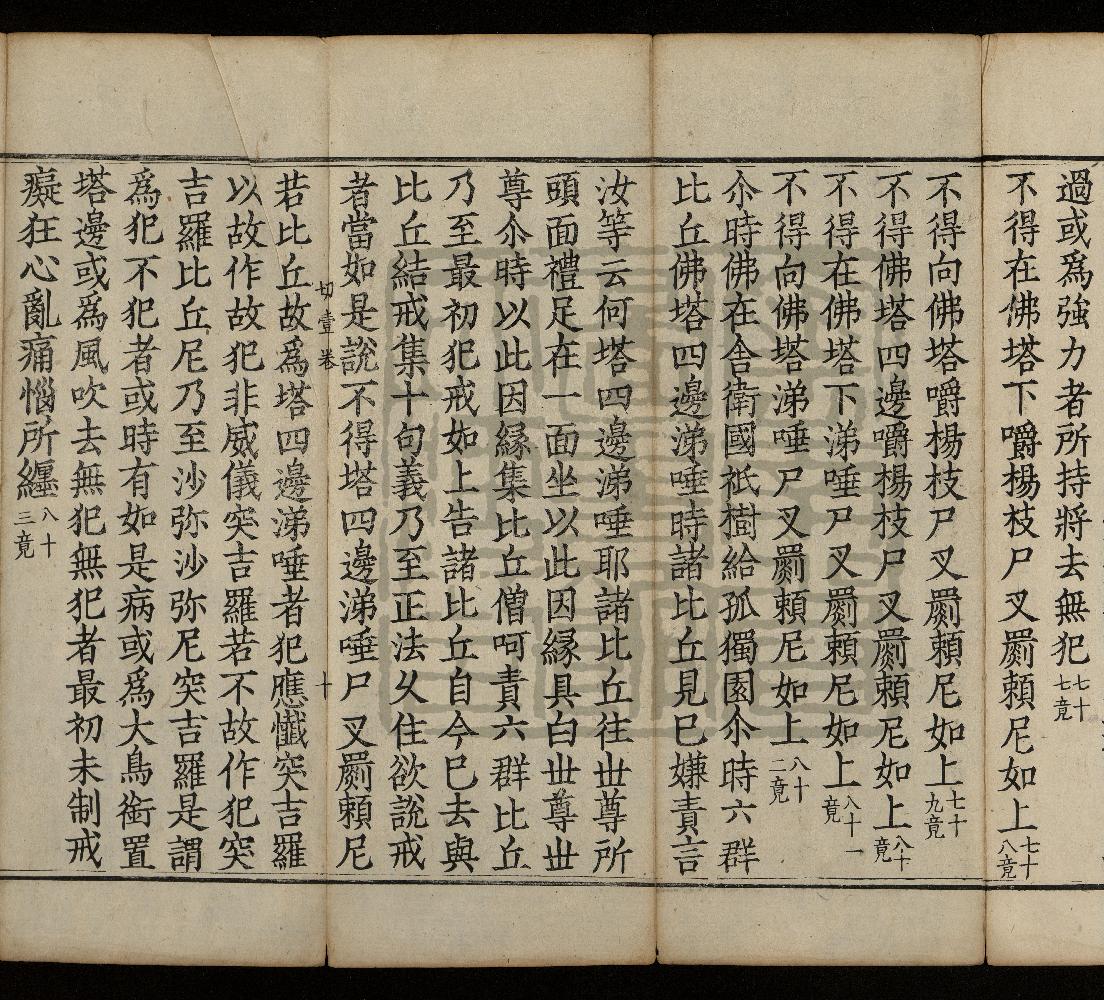 過或爲強力者所持將去無犯七十七竟
不得在佛塔下嚼楊枝尸叉罽賴尼如上七十八竟
不得向佛塔嚼楊枝尸叉罽賴尼如上七十九竟
不得佛塔四邊嚼楊枝尸叉罽賴尼如上八十竟
不得在佛塔下涕唾尸叉罽賴尼如上八十一竟
不得向佛塔涕唾尸叉罽賴尼如上八十二竟
尒時佛在舍衛國祇樹給孤獨園尒時六群
比丘佛塔四邊涕唾時諸比丘見巳嫌責言
汝等云何塔四邊涕唾耶諸比丘往世尊所
頭面禮足在一面坐以此因緣具白世尊世
尊尒時以此因緣集比丘僧呵責六群比丘
乃至最初犯戒如上告諸比丘自今巳去與
比丘結戒集十句義乃至正法久住欲說戒
者當如是說不得塔四邊涕唾尸叉罽賴尼
切壹卷 十
若比丘故爲塔四邊涕唾者犯應懺突吉羅
以故作故犯非威儀突吉羅若不故作犯突
吉羅比丘尼乃至沙弥沙弥尼突吉羅是謂
爲犯不犯者或時有如是病或爲大鳥銜置
塔邊或爲風吹去無犯無犯者最初未制戒
癡狂心亂痛惱所纏八十三竟